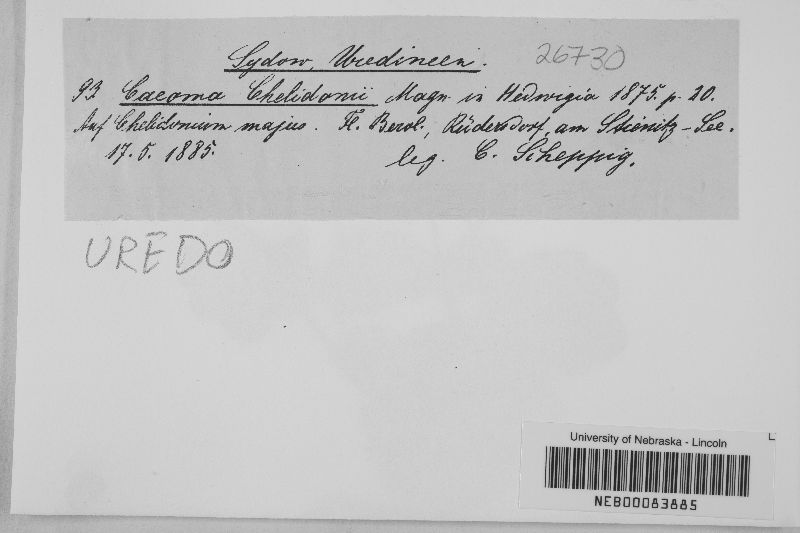 Sydow, Uredineen. 26730
93 Caeoma Chelidonii Magn. in Hedwigia 1875. p. 20.
Auf Chelidonium majus. Fl. Berol., Rüdersdorf, am Stienitz-See.
17. 5. 1885. leg. C. Scheppig.
UREDO
University of Nebraska - Lincoln
NEB00083885